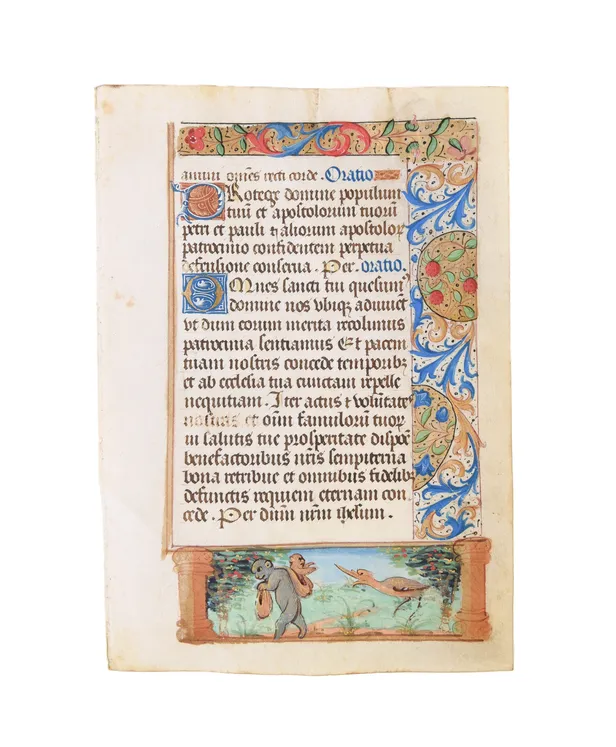 omēs recti corde. Oratio
Protege domine populum
tuū et apostolorum tuorū
petri et pauli ⁊ aliorum apostolor
patrocinio confidentem perpetua
defensione conserua. Per. oratio.
Omnes sancti tui quesum
domine nos vbiqꝫ adiuuēt
vt dum eorum merita recolimus
patrocinia sentiamus Et pacem
tuam nostris concede temporibꝫ
et ab ecclesia tua cunctam repelle
nequitiam. Iter actus ⁊ volūtate
nostras et oīm famulorū tuorꝫ
in salutis tue prosperitate dispōe
benefactoribus nr̄is sempiterna
bona retribue et omnibus fidelibꝫ
defunctis requiem eternam con
cede. Per dūm nr̄m ihesum.